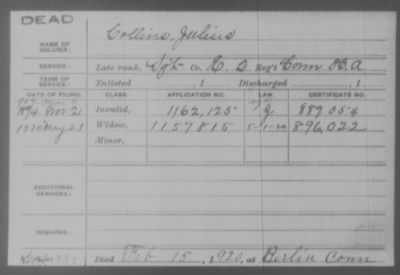 DEAD
Collins, Julius
NAME OF SOLDIER:
SERVICE: Late rank, Sgt Co. C. 2 Reg't Conn H.A
TERM OF SERVICE: Enlisted , 1 Discharged , 1
DATE OF FILING. CLASS. APPLICATION NO. LAW. CERTIFICATE NO.
1894 Nov 21 Invalid, 1162,125 G 887054
1920 May 21 Widow, 1157815 5-1-20 896,022
Minor,
ADDITIONAL SERVICES:
REMARKS:
Died Feb 15, 1920, at Berlin Conn